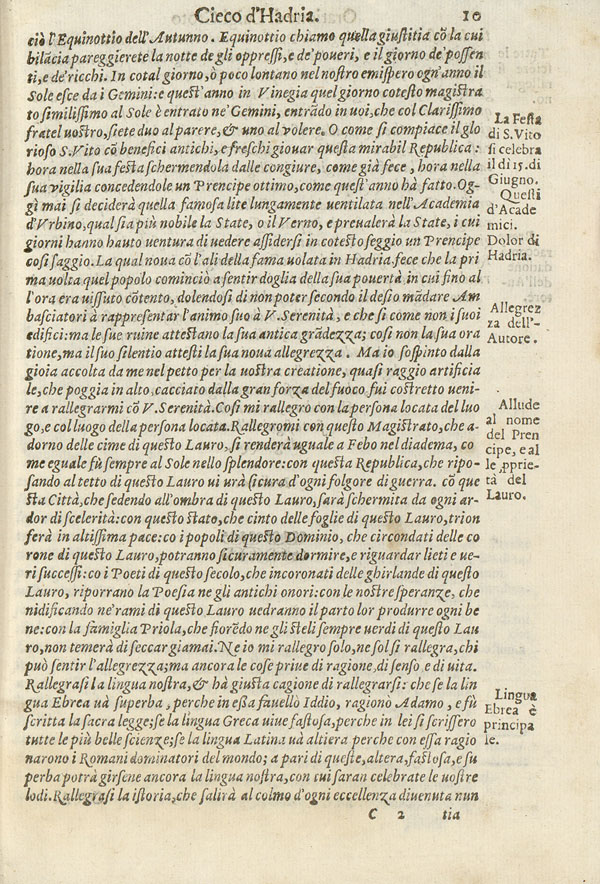 Cieco d'Hadria. 10
ciò l'Equinottio dell'Autunno. Equinottio chiamo quella giustitia cō la cui
bilācia pareggierete la notte de gli oppreßi, e de'poueri, e il giorno de'possen
ti, e de'ricchi. In cotal giorno, ò poco lontano nel nostro emispero ogn'anno il
Sole esce da i Gemini: e quest'anno in Vinegia quel giorno cotesto magistra
to similißimo al Sole è entrato ne' Gemini, entrādo in uoi, che col Clarißimo
fratel uostro, siete duo al parere, & uno al volere. O come si compiace il glo
rioso S. Vito cō benefici antichi, e freschi giouar questa mirabil Republica:
hora nella sua festa schermendola dalle congiure, come già fece, hora nella
sua vigilia concedendole un Prencipe ottimo, come quest'anno hà fatto. Og-
gi mai si deciderà quella famosa lite lungamente uentilata nell'Academia
d'Vrbino, qual sia più nobile la State, o il Verno, e preualerà la State, i cui
giorni hanno hauto uentura di uedere aßidersi in cotesto seggio un Prencipe
cosi saggio. La qual noua cō l'ali della fama uolata in Hadria fece che la pri
ma uolta quel popolo cominciò a sentir doglia della sua pouertà in cui fino al
l'ora era uissuto cōtento, dolendosi di non poter secondo il desio mādare Am
basciatori à rappresentar l'animo suo à V. Serenità, e che si come non i suoi
edifici: ma le sue ruine attestano la sua antica grādezza; cosi non la sua ora
tione, ma il suo silentio attesti la sua noua allegrezza. Ma io sospinto dalla
gioia accolta da me nel petto per la uostra creatione, quasi raggio artificia
le, che poggia in alto, cacciato dalla gran forza del fuoco, fui costretto ueni-
re a rallegrarmi cō V. Serenità. Cosi mi rallegro con la persona locata del luo
go, e col luogo della persona locata. Rallegromi con questo Magistrato, che a-
dorno delle cime di questo Lauro, si renderà uguale a Febo nel diadema, co
me eguale fù sempre al Sole nello splendore: con questa Republica, che ripo-
sando al tetto di questo Lauro ui urà sicura d'ogni folgore di guerra. cō que
sta Città, che sedendo all'ombra di questo Lauro, sarà schermita da ogni ar-
dor di scelerità: con questo stato, che cinto delle foglie di questo Lauro, trion
ferà in altißima pace: co i popoli di questo Dominio, che circondati delle co
rone di questo Lauro, potranno sicuramente dormire, e riguardar lieti e ue-
ri succeßi: co i Poeti di questo secolo, che incoronati delle ghirlande di questo
Lauro, riporrano la Poesia ne gli antichi onori: con le nostre speranze, che
nidificando ne'rami di questo Lauro uedranno il parto lor produrre ogni be
ne: con la famiglia Priola, che fiorēdo ne gli steli sempre uerdi di questo Lau
ro, non temerà di seccar giamai. Ne io mi rallegro solo, ne sol si rallegra, chi
può sentir l'allegrezza; ma ancora le cose priue di ragione, di senso e di uita.
Rallegrasi la lingua nostra, & hà giusta cagione di rallegrarsi: che se la lin
gua Ebrea uà superba, perche in eßa fauellò Iddio, ragionò Adamo, e fù
scritta la sacra legge; se la lingua Greca uiue fastosa, perche in lei si scrissero
tutte le più belle scienze; se la lingua Latina uà altiera perche con essa ragio
narono i Romani dominatori del mondo; a pari di queste, altera, fastosa, e su
perba potrà girsene ancora la lingua nostra, con cui saran celebrate le uostre
lodi. Rallegrasi la istoria, che salirà al colmo d'ogni eccellenza diuenuta nun
C 2 tia
La Festa
di S. Vito
si celebra
il dì 15. di
Giugno.
Questi
d'Acade
mici.
Dolor di
Hadria.
Allegrez
za dell'-
Autore.
Allude
al nome
del Pren
cipe, e al
le ꝓprie-
tà del
Lauro.
Lingua
Ebrea è
principa
le.